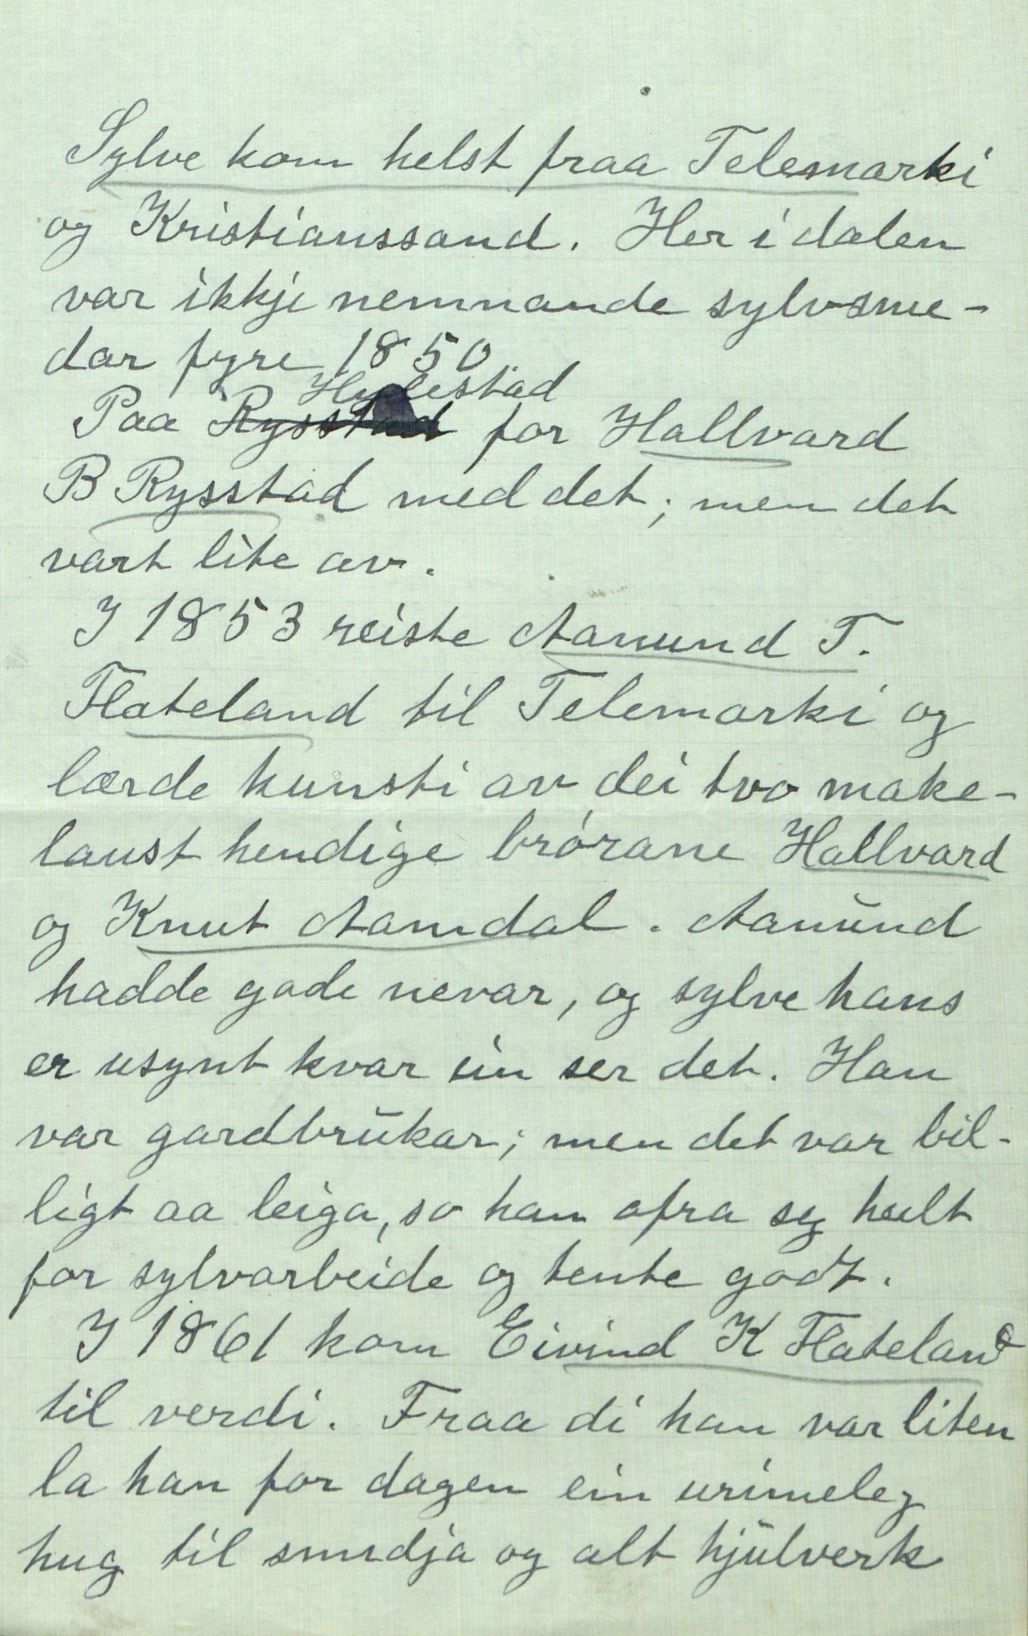 Sylve kom helst fraa Telemarki
og Kristianssand. Her i dalen
var ikkje nemnande sylvsme-
dar fyre 1850
Hylestad
Paa Rysstad for Hallvard
B Rysstad med det; men det
vart lite av.
I 1853 reiste Aanund T.
Flateland til Telemarki og
lærde kunsti av dei tvo make-
laust hendige brørane Hallvard
og Knut Aamdal. Aanund
hadde gode nevar, og sylve hans
er usynt kvar ein ser det. Han
var gardbrukar; men det var bil-
ligt aa leiga, so han ofra seg heilt
for sylvarbeide og tente godt.
I 1861 kom Eivind K Flateland
til verdi. Fraa di han var liten
la han for dagen ein urimeleg
hug til smidja og alt hjulverk